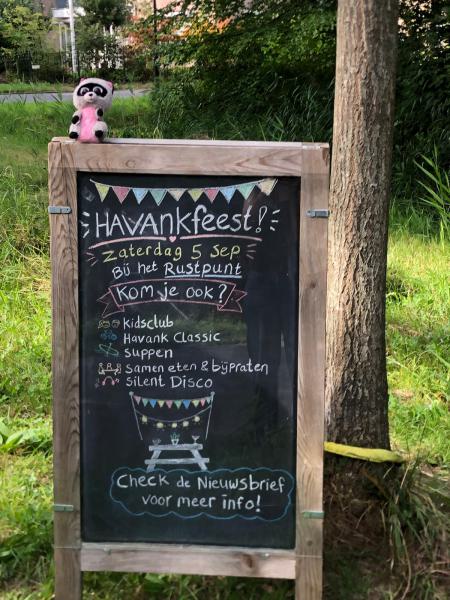 HAVANKfeest!
Zaterdag 5 Sep
Bij het Rustpunt
Kom je ook?
Kidsclub
Havank Classic
Suppen
samen eten & bijpraten
Silent Disco
Check de Nieuwsbrief
voor meer info!